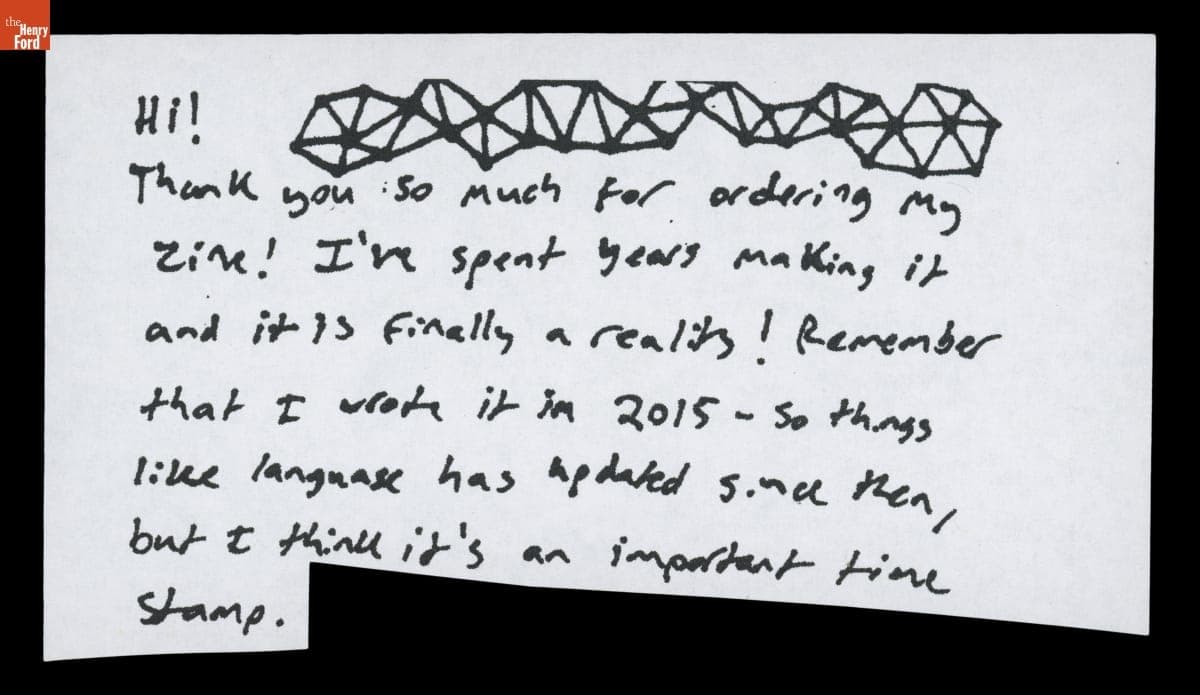 the
Henry
Ford
Hi!
Thank you so much for ordering my
zine! I've spent years making it
and it is finally a reality! Remember
that I wrote it in 2015 - so things
like language has updated since then,
but I think it's an important time
stamp.